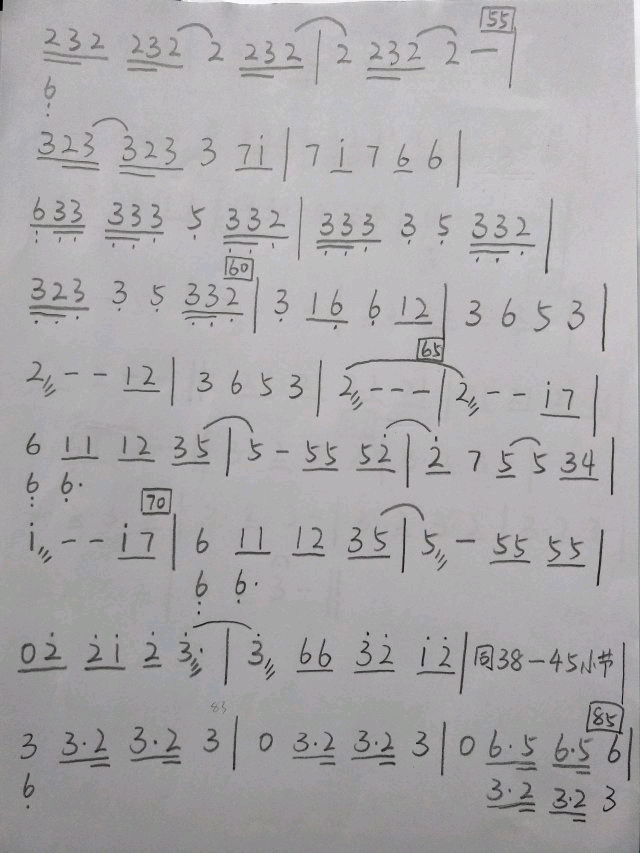 55
232 232 2 232 | 2 232 2 — |
6
323 323 3 7i | 7 i 7 6 6 |
633 333 5 332 | 333 3 5 332 |
60
323 3 5 332 | 3 16 6 12 | 3 6 5 3 |
65
2 - - 12 | 3 6 5 3 | 2 - - - | 2 - - i7 |
6 11 12 35 | 5 - 55 52̇ | 2̇ 7 5 5 34 |
6 6·
70
i - - i7 | 6 11 12 35 | 5 - 55 55 |
6 6·
02̇ 2̇i 2̇ 3̇· | 3̇ 66 3̇2̇ i2̇ | 同38-45小节 |
85
3 3·2 3·2 3 | 0 3·2 3·2 3 | 0 6·5 6·5 6 |
6 3·2 3·2 3